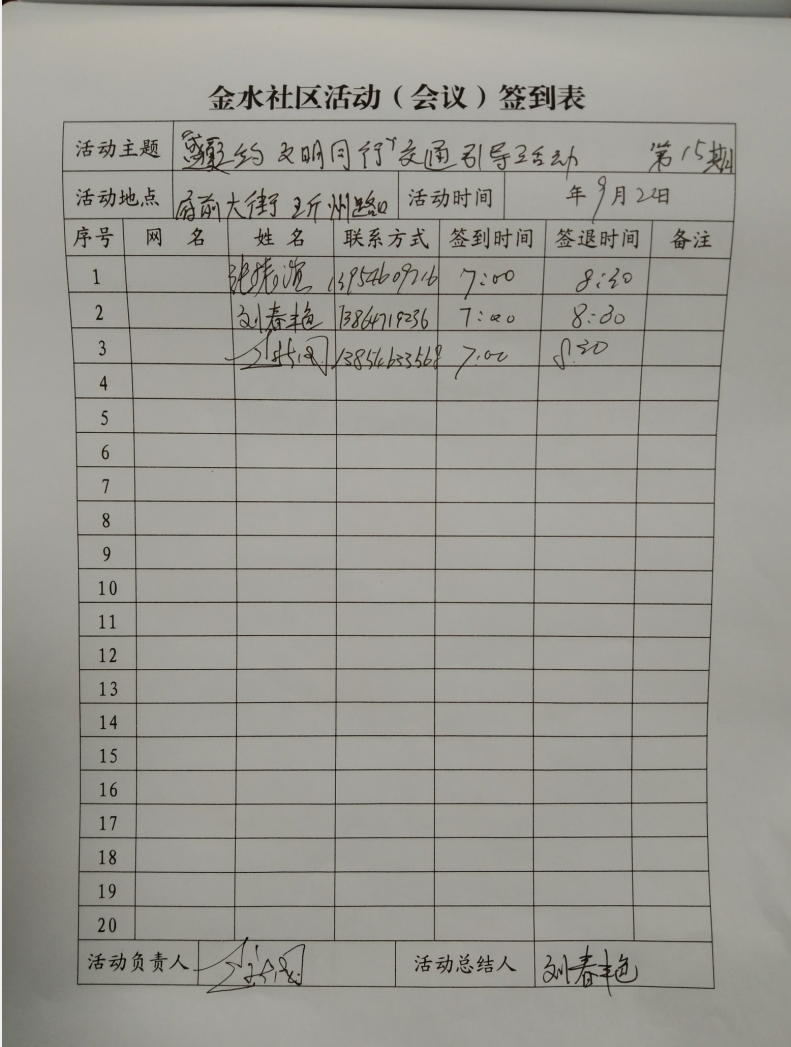 金水社区活动（会议）签到表
活动主题 之约 文明同行" 交通引导活动 第15期
活动地点 府前大街 沂州路口 活动时间 年9月22日
序号 网 名 姓 名 联系方式 签到时间 签退时间 备注
1 7:00 8:30
2 刘春艳 13864719236 7:00 8:30
3 13854633568 7:00 8:30
4
5
6
7
8
9
10
11
12
13
14
15
16
17
18
19
20
活动负责人 活动总结人 刘春艳